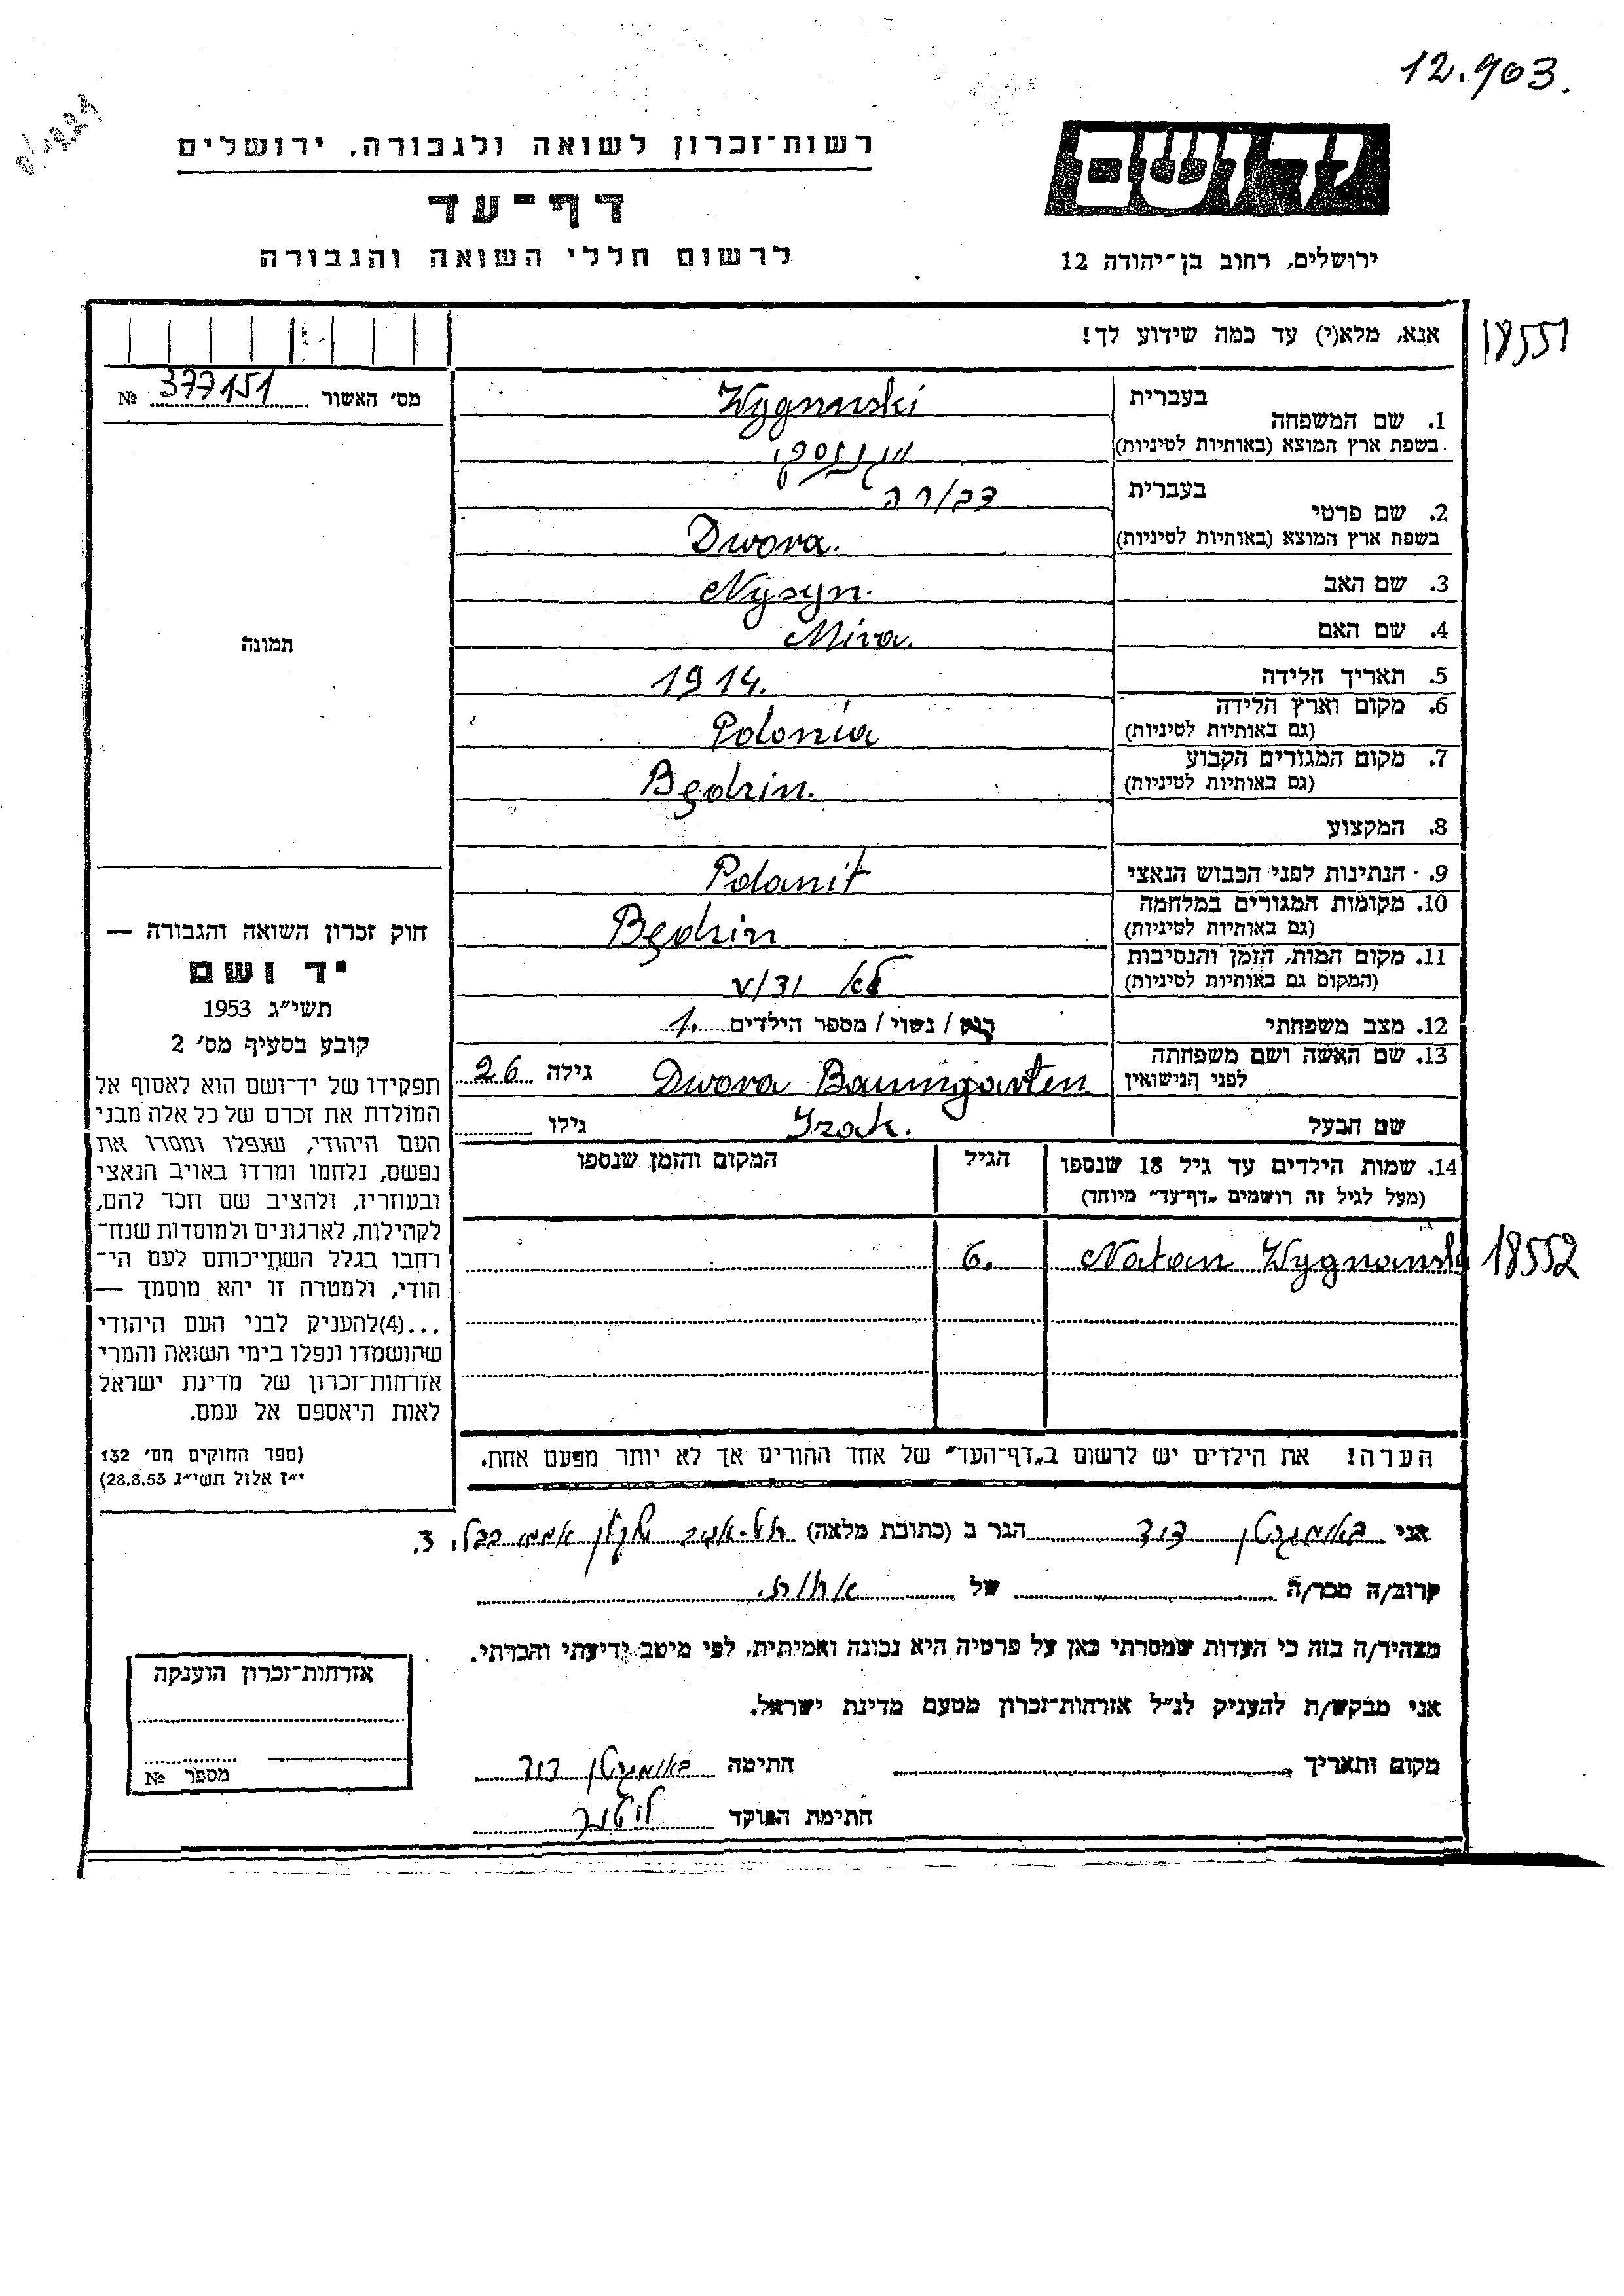 12.903.
יד ושם
רשות־זכרון לשואה ולגבורה, ירושלים
דף־עד
לרשום חללי השואה והגבורה
ירושלים, רחוב בן־יהודה 12
אנא, מלא(י) עד כמה שידוע לך!
18551
מס׳ האשור 377151 №
תמונה
1. שם המשפחה
בעברית Wygnanski
בשפת ארץ המוצא (באותיות לטיניות)
2. שם פרטי
בעברית דבורה
בשפת ארץ המוצא (באותיות לטיניות) Dwora.
3. שם האב Nysyn.
4. שם האם Mira.
5. תאריך הלידה 1914.
6. מקום וארץ הלידה Polonia
(גם באותיות לטיניות)
7. מקום המגורים הקבוע Będzin.
(גם באותיות לטיניות)
8. המקצוע
9. הנתינות לפני הכבוש הנאצי Polanit
10. מקומות המגורים במלחמה Będzin
(גם באותיות לטיניות)
11. מקום המות, הזמן והנסיבות לא ידוע
(המקום גם באותיות לטיניות)
12. מצב משפחתי רוק / נשוי / מספר הילדים 1.
13. שם האשה ושם משפחתה Dwora Baumgarten גילה 26
לפני הנישואין
שם הבעל Izak. גילו
14. שמות הילדים עד גיל 18 שנספו הגיל המקום והזמן שנספו
(מעל לגיל זה רושמים „דף־עד״ מיוחד)
Natan Wygnanski 6.
18552
הערה! את הילדים יש לרשום ב„דף־העד״ של אחד ההורים אך לא יותר מפעם אחת.
חוק זכרון השואה והגבורה —
יד ושם
תשי״ג 1953
קובע בסעיף מס׳ 2
תפקידו של יד־ושם הוא לאסוף אל
המולדת את זכרם של כל אלה מבני
העם היהודי, שנפלו ומסרו את
נפשם, נלחמו ומרדו באויב הנאצי
ובעוזריו, ולהציב שם וזכר להם,
לקהילות, לארגונים ולמוסדות שנח־
רחבו בגלל השתייכותם לעם הי־
הודי, ולמטרה זו יהא מוסמך —
...(4)להעניק לבני העם היהודי
שהושמדו ונפלו בימי השואה והמרי
אזרחות־זכרון של מדינת ישראל
לאות היאספם אל עמם.
(ספר החוקים מס׳ 132
י״ז אלול תשי״ג 28.8.53)
אני באומגרטן דוד הגר ב (כתובת מלאה) תל-אביב 3.
קרוב/ה מכר/ה של אחות
מצהיר/ה בזה כי העדות שמסרתי כאן על פרטיה היא נכונה ואמיתית, לפי מיטב ידיעתי והכרתי.
אני מבקש/ת להעניק לנ״ל אזרחות־זכרון מטעם מדינת ישראל.
מקום ותאריך חתימה באומגרטן דוד
חתימת הפוקד
אזרחות־זכרון הוענקה
מספר №